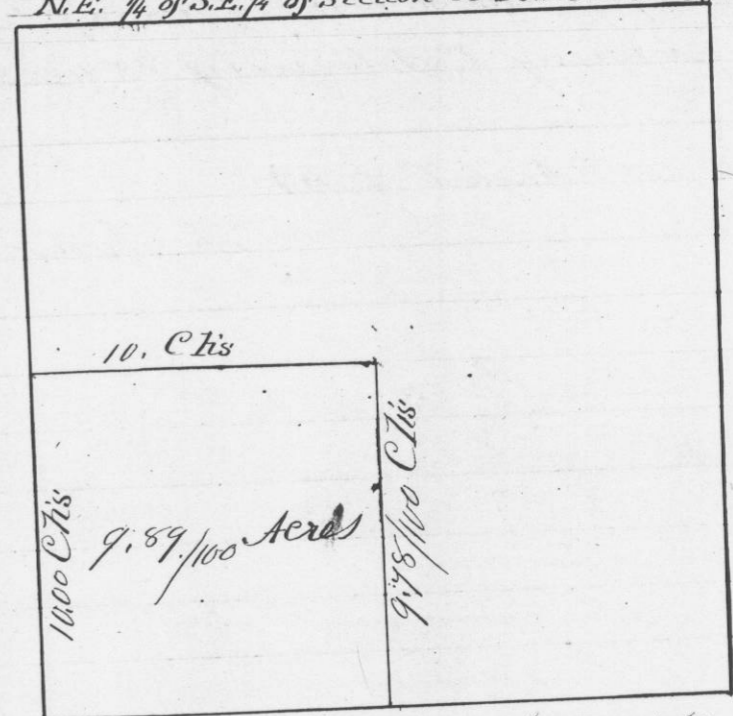 N.E. 1/4 of S.E. 1/4 of Section
10. Chs
10.00 Chs
9.89/100 Acres
9.78/100 Chs